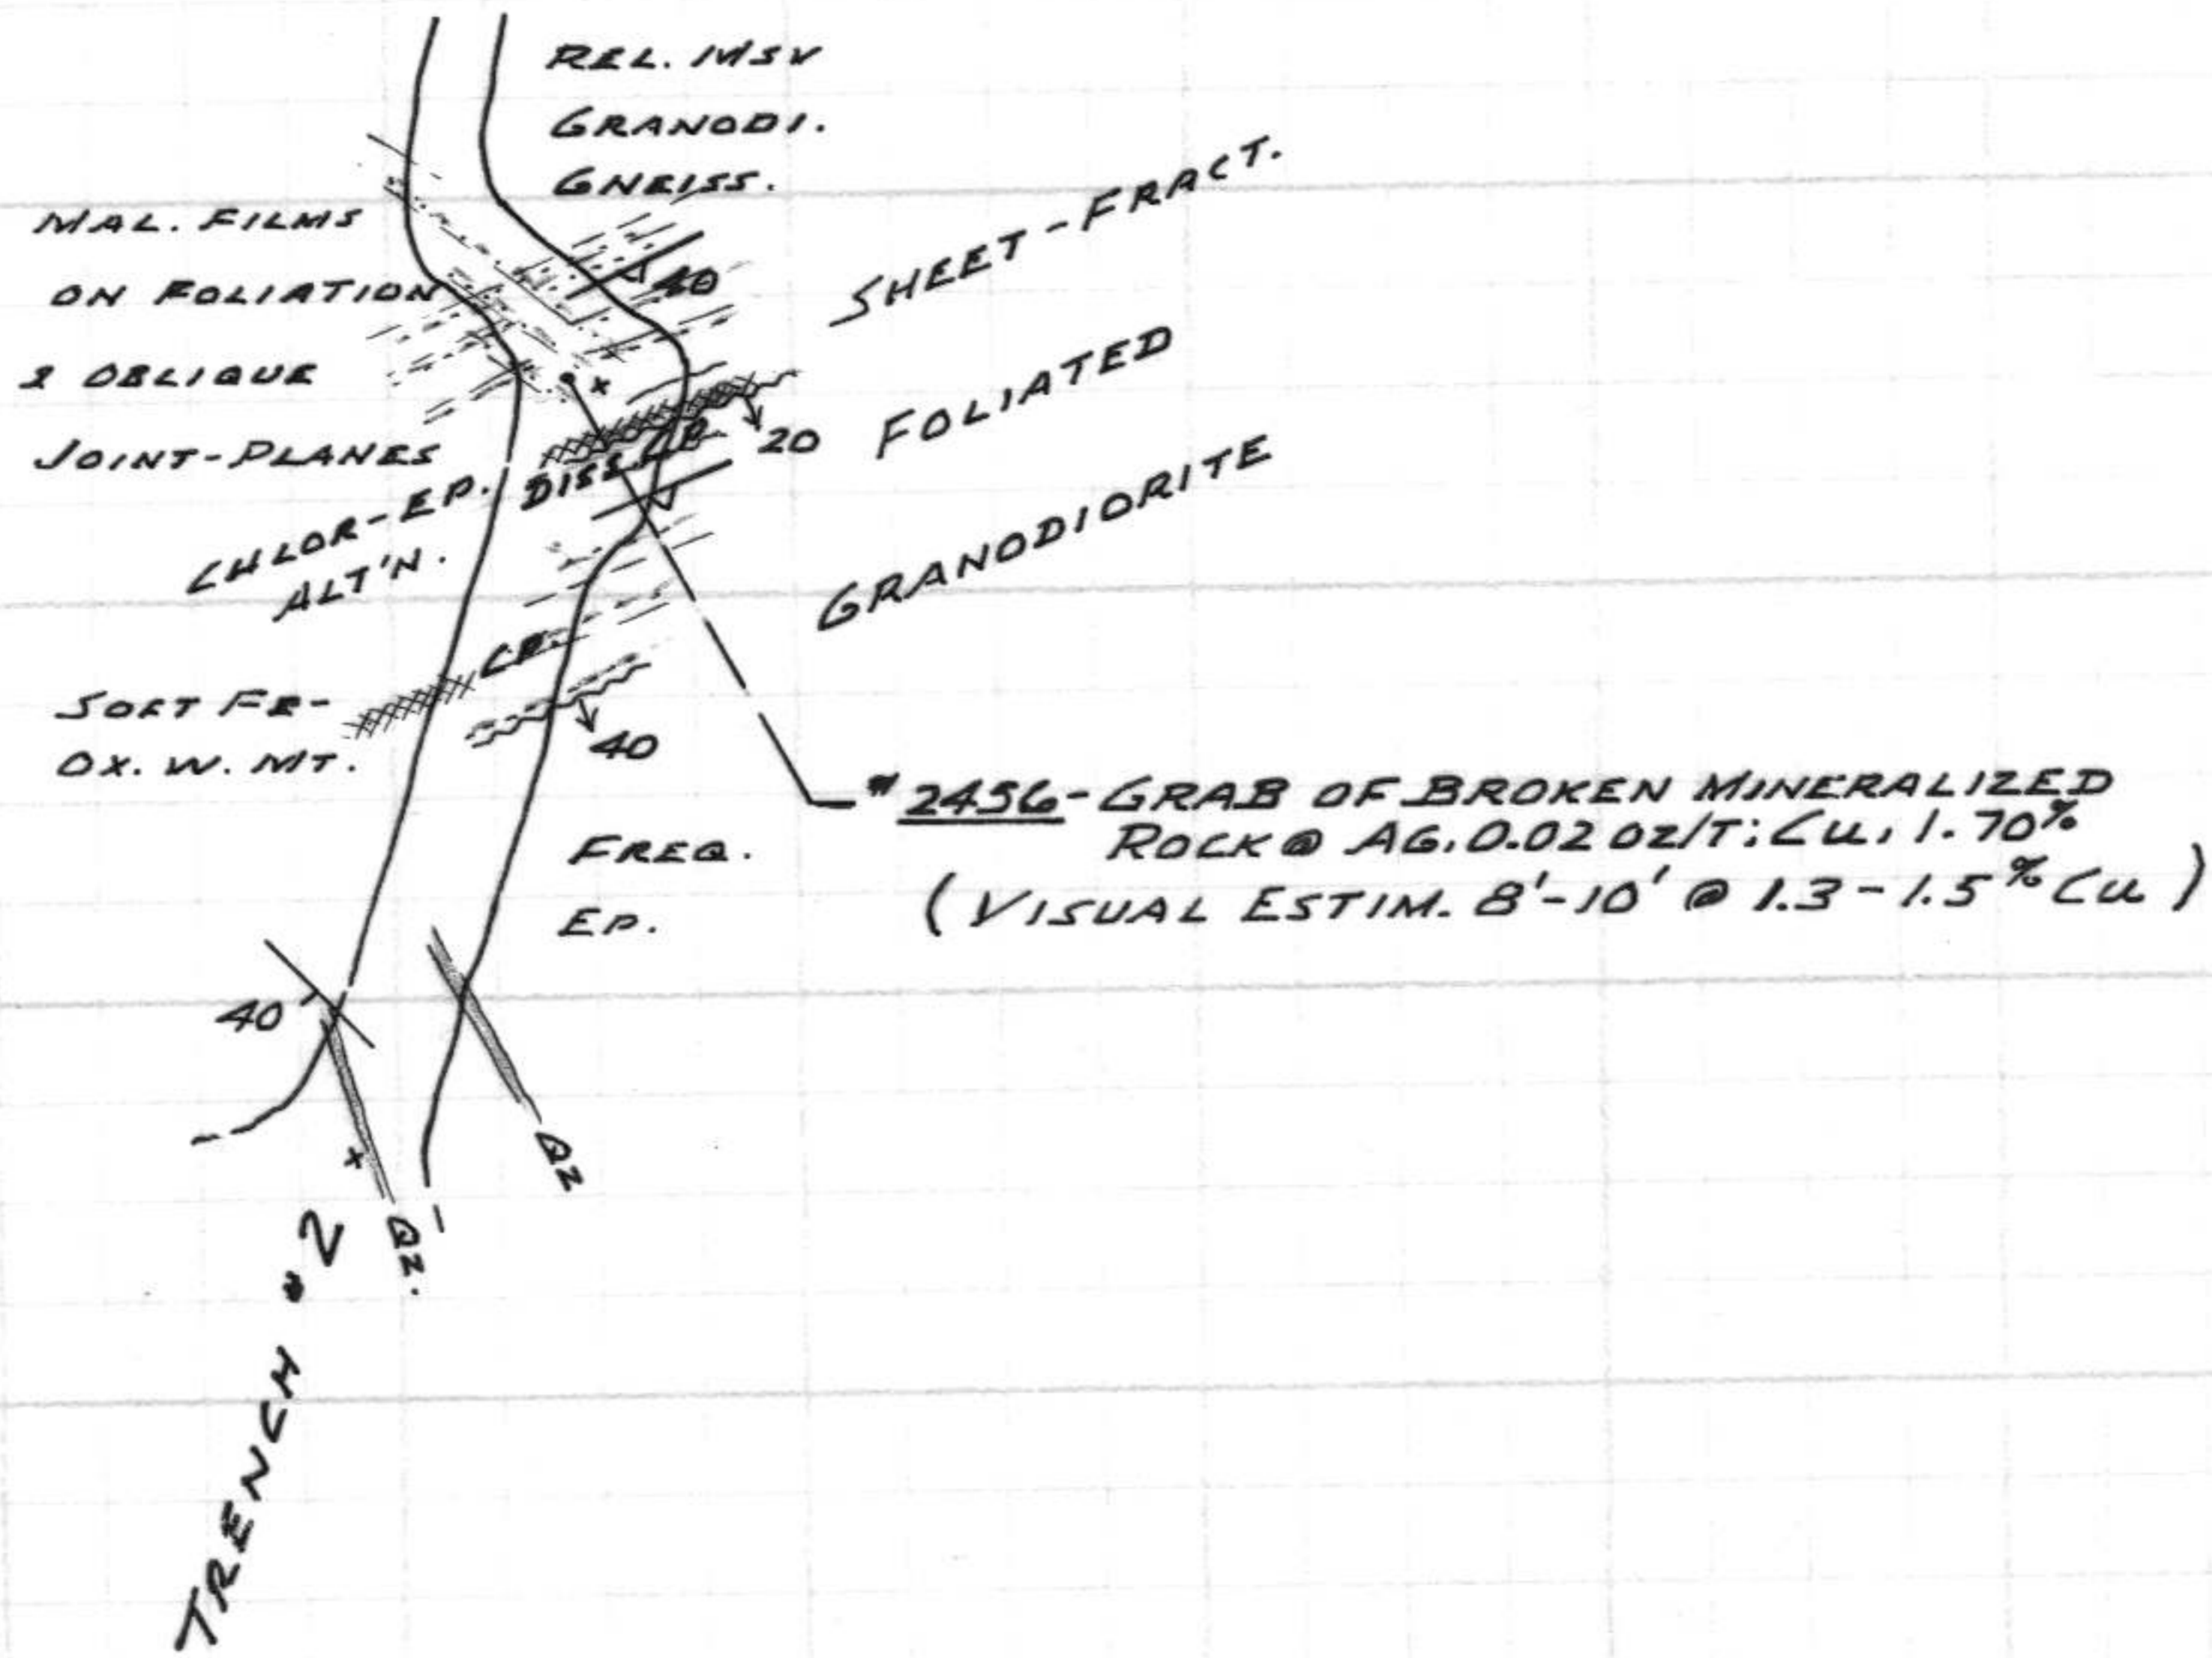 REL. MSV
GRANODI.
GNEISS.
MAL. FILMS
ON FOLIATION
& OBLIQUE
JOINT-PLANES
40
SHEET-FRACT.
FOLIATED
GRANODIORITE
20
DISS. CP.
CHLOR-EP.
ALT'N.
CP.
SOFT FE-
OX. W. MT.
40
#2456-GRAB OF BROKEN MINERALIZED
ROCK @ AG, 0.02 OZ/T; Cu, 1.70%
(VISUAL ESTIM. 8'-10' @ 1.3-1.5% Cu)
FREQ.
EP.
40
QZ
QZ.
TRENCH #2